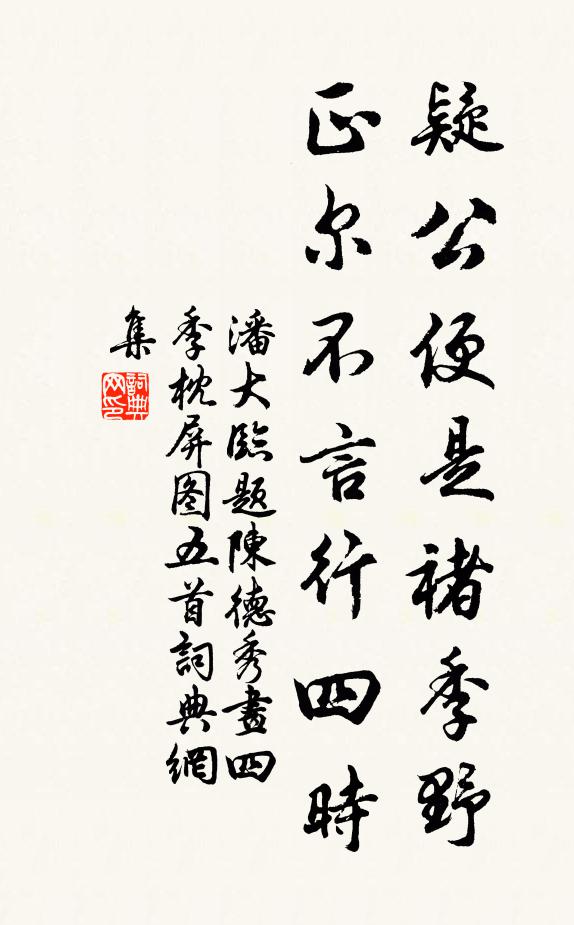 疑公便是褚季野
正尔不言行四時
潘大臨題陳德秀畫四
季枕屏图五首詞典網
集
詞典网印